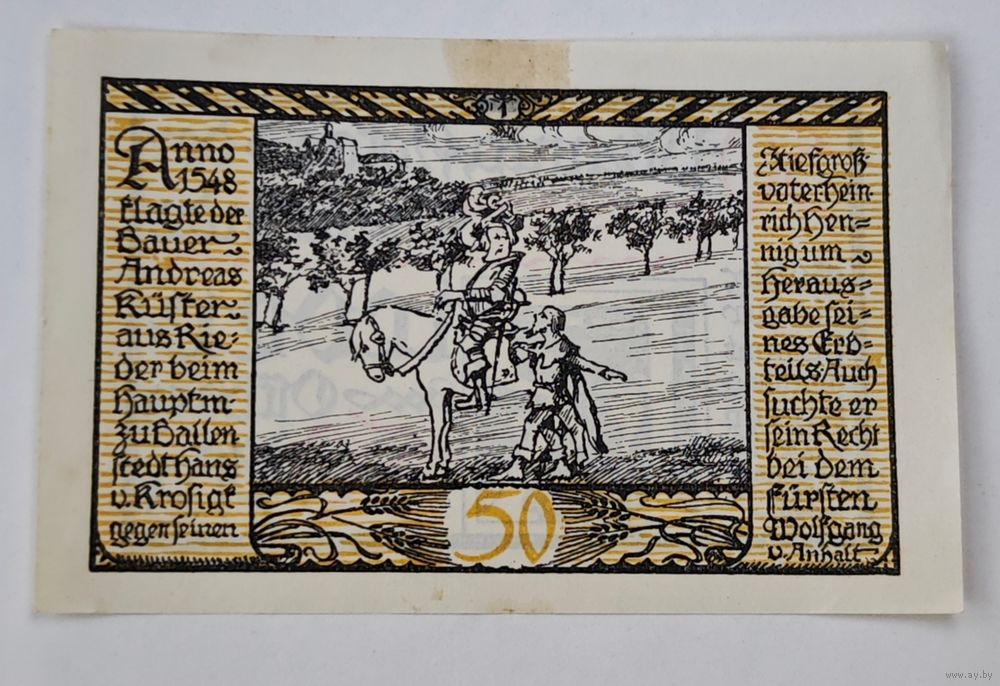 1
Anno
1548
klagte der
Bauer
Andreas
Küster
aus Rie=
der beim
Hauptm-
zu Ballen
stedt Hans
v. Krosigk
gegen seinen
Stiefgroß-
vater Hein
rich Hen=
nig um
Heraus=
gabe sei-
nes Erb-
teils. Auch
suchte er
sein Recht
bei dem
Fürsten
Wolfgang
v. Anhalt-
50
www.ay.by